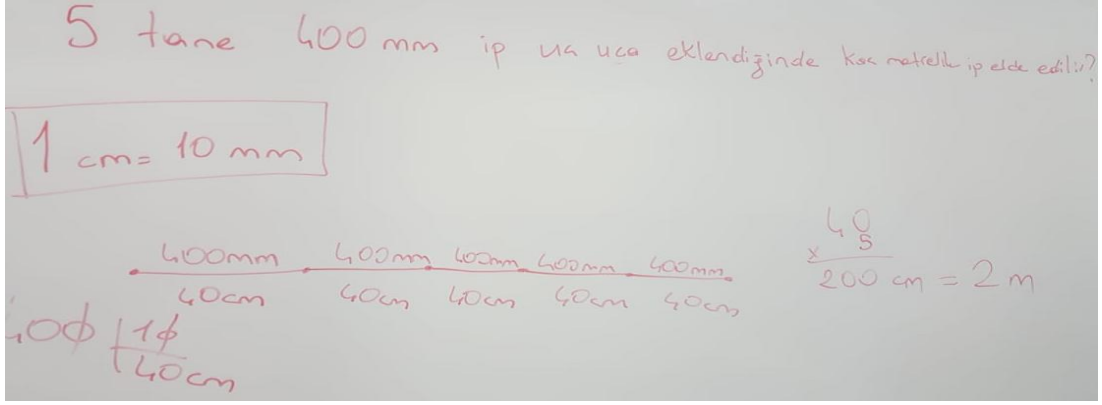 5 tane 400 mm ip uc uca eklendiğinde kaç metrelik ip elde edilir?
1 cm = 10 mm
400mm 400mm 400mm 400mm 400mm
40cm 40cm 40cm 40cm 40cm
40
x 5
200 cm = 2 m
400 | 10
40cm